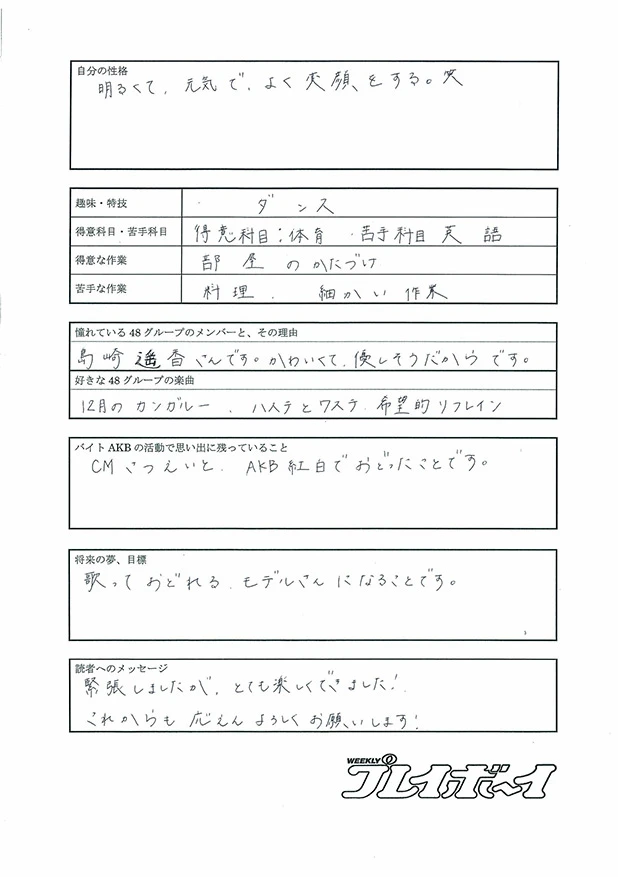 自分の性格
明るくて、元気で、よく笑顔をする。笑
趣味・特技
ダンス
得意科目・苦手科目
得意科目:体育 ・苦手科目 英語
得意な作業
部屋のかたづけ
苦手な作業
料理、細かい作業
憧れている48グループのメンバーと、その理由
島崎遥香さんです。かわいくて、優しそうだからです。
好きな48グループの楽曲
12月のカンガルー、ハステとワステ、希望的リフレイン
バイトAKBの活動で思い出に残っていること
CMさつえいと、AKB紅白でおどったことです。
将来の夢、目標
歌っておどれる、モデルさんになることです。
3
読者へのメッセージ
緊張しましたが、とても楽しくできました!
これからも応えんよろしくお願いします!
WEEKLY
プレイボーイ